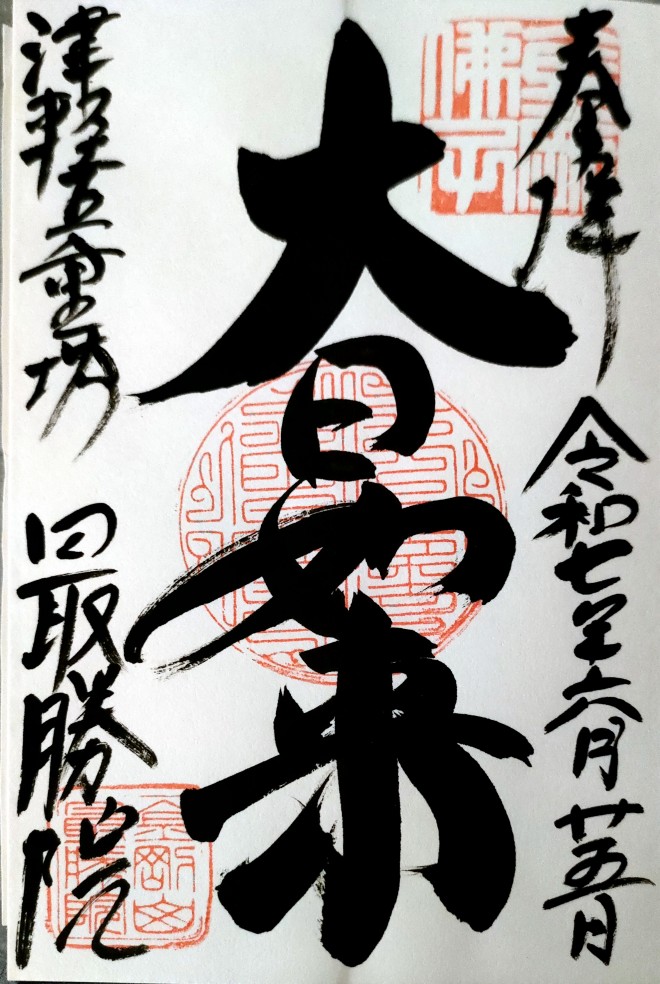 奉拝
令和七年六月廿五日
大日如来
津軽五重塔
最勝院